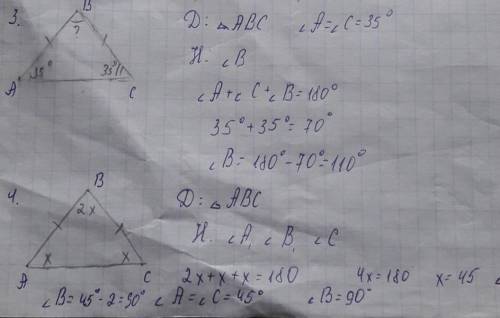 3.
B
?
A
35°
35°
C
Д: △ABC ∠A=∠C=35°
Н. ∠B
∠A+∠C+∠B=180°
35°+35°=70°
∠B=180°-70°=110°
4.
B
2x
A
x
x
C
Д: △ABC
Н. ∠A, ∠B, ∠C
2x+x+x=180 4x=180 x=45 ∠
∠B=45°·2=90° ∠A=∠C=45° ∠B=90°